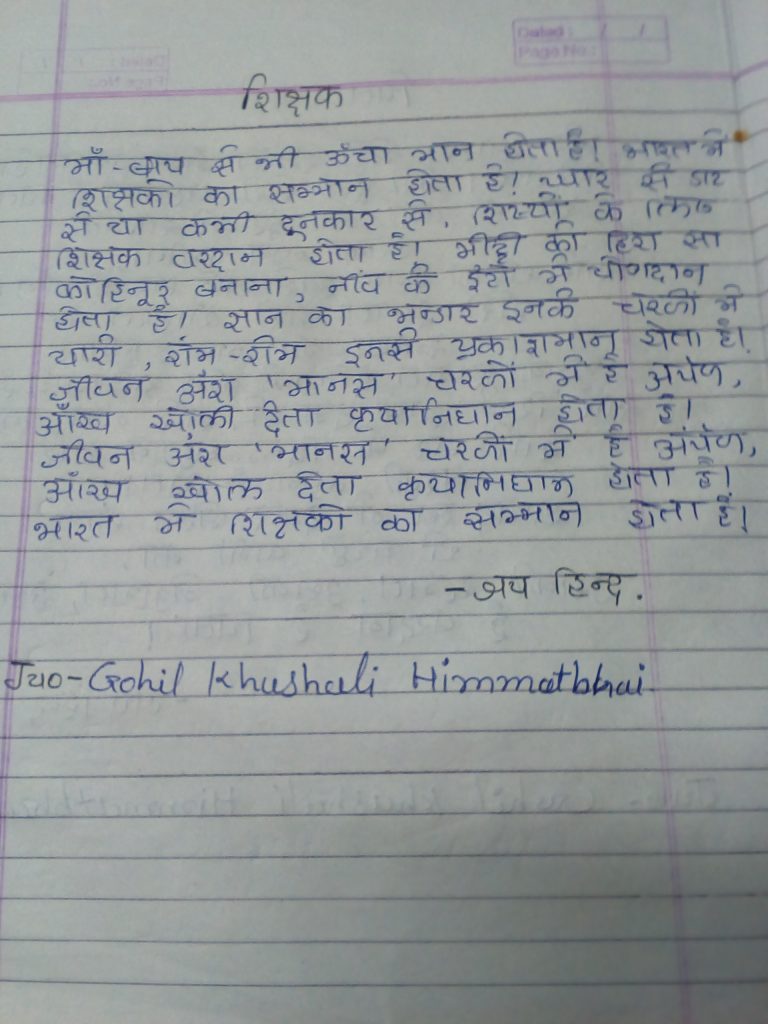 Dated: / /
Page No.:
शिक्षक
माँ-बाप से भी ऊँचा मान होता है। भारत में
शिक्षको का सम्मान होता है! प्यार से डाट
से या कभी दूनकार से, शिष्यों के लिए
शिक्षक वरदान होता है। मीट्टी को हिरा सा
कोहिनूर बनाना, नींव के ईंटो में योगदान
होता है। ज्ञान का भन्डार इनके चरणों में
यारो, रोम-रोम इनसे प्रकाशमान होता है।
जीवन अंश 'मानस' चरणों में है अर्पण,
आँख खोली देता कृपानिधान होता है।
जीवन अंश 'मानस' चरणों में है अर्पण,
आँख खोल देता कृपानिधान होता है।
भारत में शिक्षको का सम्मान होता है।
- जय हिन्द.
Gohil Khushali Himmatbhai